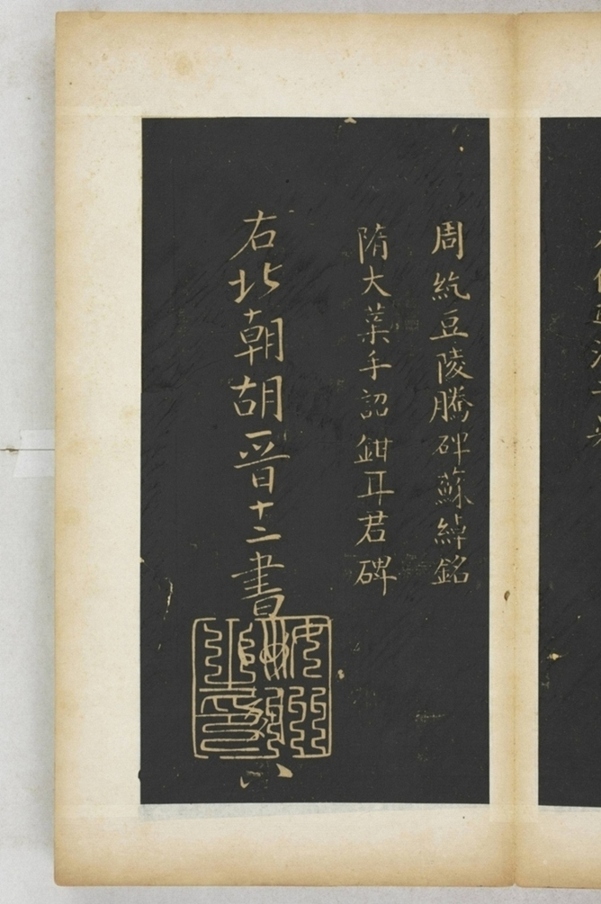 周紇豆陵騰碑蘇綽銘
隋大業手詔鉗耳君碑
右北朝胡晉十二書
八